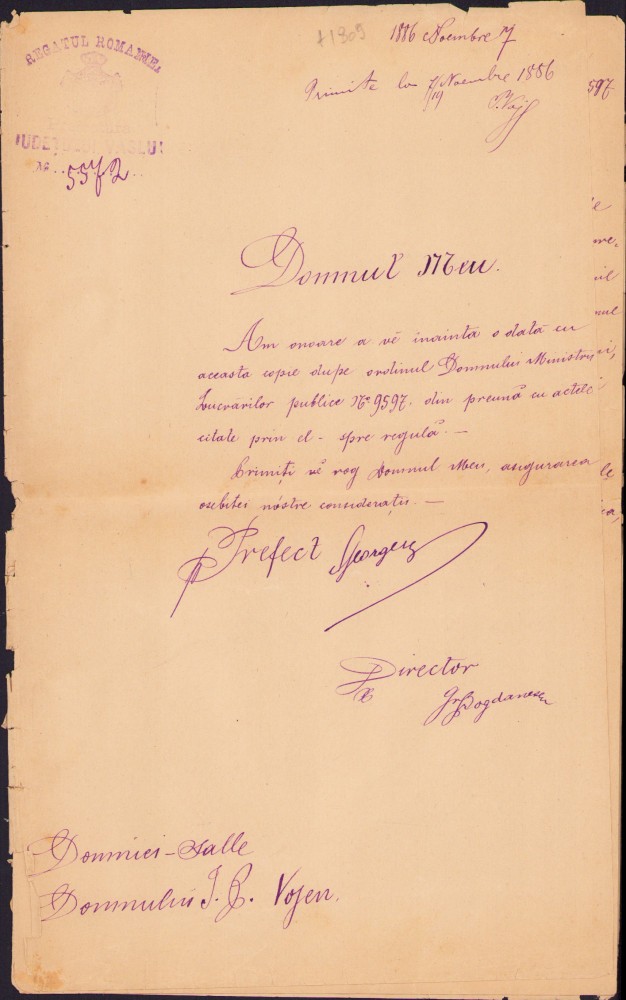 REGATUL ROMANIEI
JUDEŢULUI VASLUI
No 5572
+1309
1886 Noembre 7
Primite la 7/19 Noembre 1886
597
Domnul Meu.
Am onoare a vĕ inainta o dată cu
aceasta copie dupe ordinul Domnului Ministru
Lucrărilor publice No 9597. din preună cu actele
citate prin el - spre regulă. —
Primiţi vĕ rog Domnul Meu, asigurarea
osebitei nóstre consideraţii. —
Prefect
Director
Gr Bogdanescu
Domniei-Salle
Domnului I. B. Vojen.